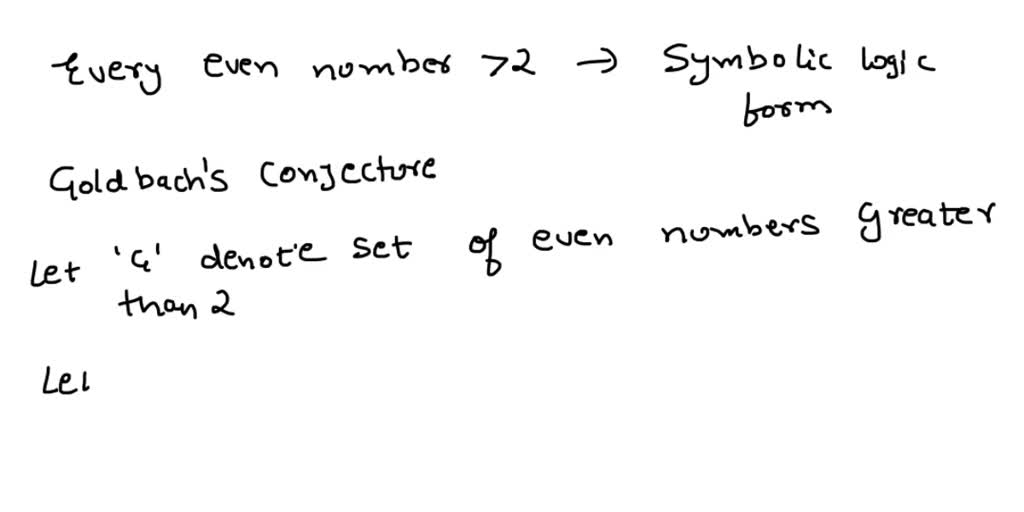 Every even number >2 → Symbolic logic
form
Goldbach's Conjecture
Let 'G' denote set of even numbers greater
than 2
Let